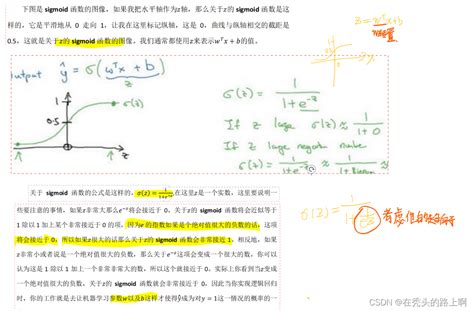 下图是 sigmoid 函数的图像，如果我把水平轴作为z轴，那么关于z的 sigmoid 函数是这
样的，它是平滑地从 0 走向 1，让我在这里标记纵轴，这是 0，曲线与纵轴相交的截距是
0.5，这就是关于z的 sigmoid 函数的图像。我们通常都使用z来表示wᵀx + b的值。
z = wᵀx+b
output ŷ = σ(wᵀx + b)
z
1
σ(z)
0.5
0
z
σ(z) = 1/(1+e^-z)
If z large σ(z) ≈ 1/(1+0)
If z large negative number
σ(z) = 1/(1+e^-z) ≈ 1/(1+
关于 sigmoid 函数的公式是这样的，σ(z) = 1/(1+e^-z),在这里z是一个实数，这里要说明一
些要注意的事情，如果z非常大那么e^-z将会接近于 0，关于z的 sigmoid 函数将会近似等于
1 除以 1 加上某个非常接近于 0 的项，因为e 的指数如果是个绝对值很大的负数的话，这项
将会接近于 0，所以如果z很大的话那么关于z的 sigmoid 函数会非常接近 1。相反地，如果
z非常小或者说是一个绝对值很大的负数，那么关于e^-z这项会变成一个很大的数，你可以
认为这是 1 除以 1 加上一个非常非常大的数，所以这个就接近于 0。实际上你看到当z变成
一个绝对值很大的负数，关于z的 sigmoid 函数就会非常接近于 0，因此当你实现逻辑回归
时，你的工作就是去让机器学习参数w以及b这样才使得ŷ成为对y = 1这一情况的概率的一
σ(z) = 1/(1+
CSDN @在秃头的路上啊